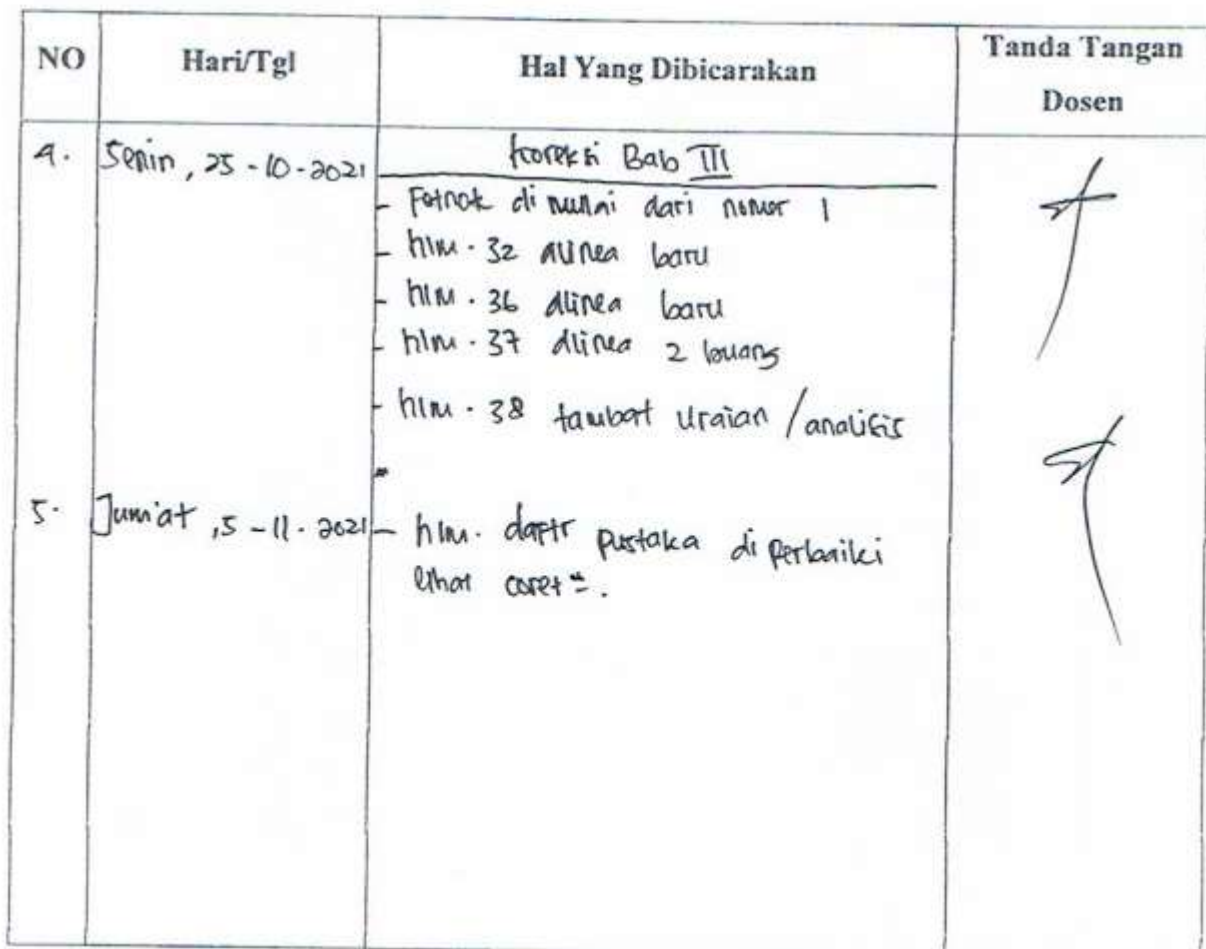 NO Hari/Tgl Hal Yang Dibicarakan Tanda Tangan
Dosen
4. Senin, 25-10-2021 Koreksi Bab III
- Fotnot di mulai dari nomor 1
- hlm. 32 alinea baru
- hlm. 36 alinea baru
- hlm. 37 alinea 2 buang
- hlm. 38 tambat uraian / analisis
5. Jum'at, 5-11-2021 - hlm. daftr pustaka di perbaiki
lihat coret=.